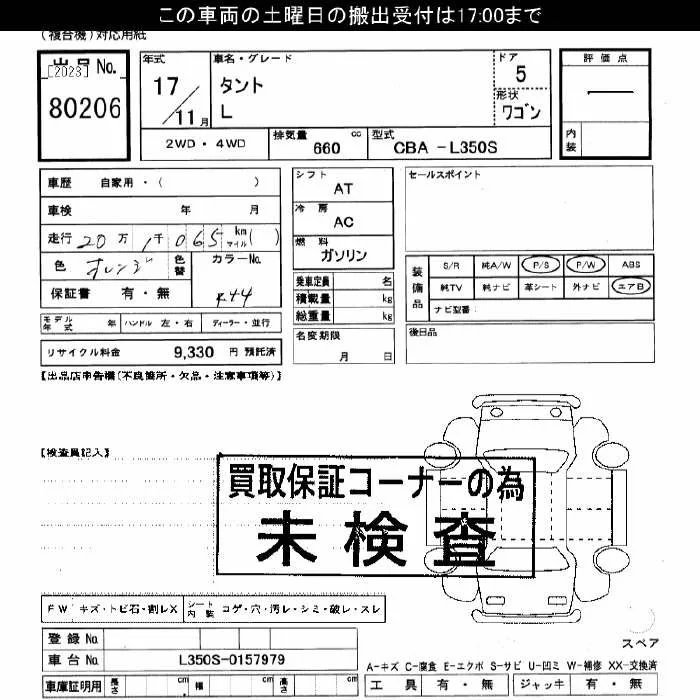 この車両の土曜日の搬出受付は17:00まで
(複合機)対応用紙
出品 No.
[2023]
80206
年式
17
11 月
車名・グレード
タント
L
ドア
5
形状
ワゴン
評価点
—
内装
2WD ・ 4WD
排気量 cc
660
型式
CBA -L350S
車歴 自家用 ・ ( )
車検 年 月
走行 20 万 1 千 065 km マイル ( )
色 オレンジ 色替 カラーNo.
保証書 有 ・ 無 R44
モデル年式 年 ハンドル 左 ・ 右 ディーラー ・ 並行
リサイクル料金 9,330 円 預託済
シフト
AT
冷房
AC
燃料
ガソリン
乗車定員 名
積載量 kg
総重量 kg
名変期限
月 日
セールスポイント
装備品
S/R 純A/W P/S P/W ABS
純TV 純ナビ 革シート 外ナビ エアB
ナビ型番
後日品
【出品店申告欄(不良箇所・欠品・注意事項等)】
【検査員記入】
買取保証コーナーの為
未検査
FW キズ・トビ石・割レX シート内装 コゲ・穴・汚レ・シミ・破レ・スレ
登録 No.
車台 No. L350S-0157979
車庫証明用 長さ cm 幅 cm 高さ cm
スペア
A-キズ C-腐食 E-エクボ S-サビ U-凹ミ W-補修 XX-交換済
工具 有 ・ 無 ジャッキ 有 ・ 無